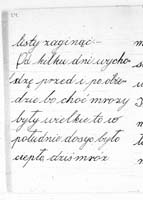 listy zaginąć.—
Od kilku dni wycho-
dzę przed i po obie-
dzie, bo choć mrozy
były wielkie to w
południe dosyć było
ciepło, dziś mróz